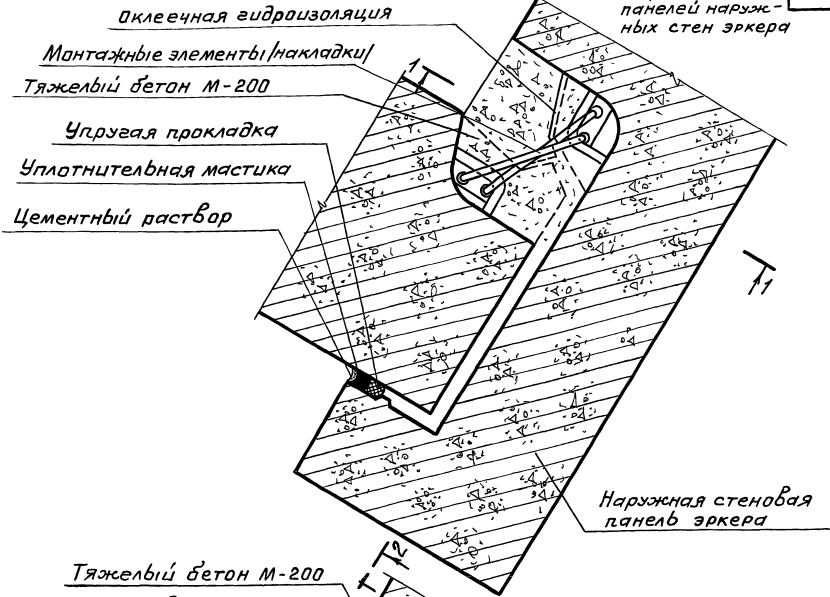 Оклеечная гидроизоляция
панелей наруж-
ных стен эркера
Монтажные элементы/накладки/
Тяжелый бетон М-200
Упругая прокладка
Уплотнительная мастика
Цементный раствор
1
1
Наружная стеновая
панель эркера
2
Тяжелый бетон М-200